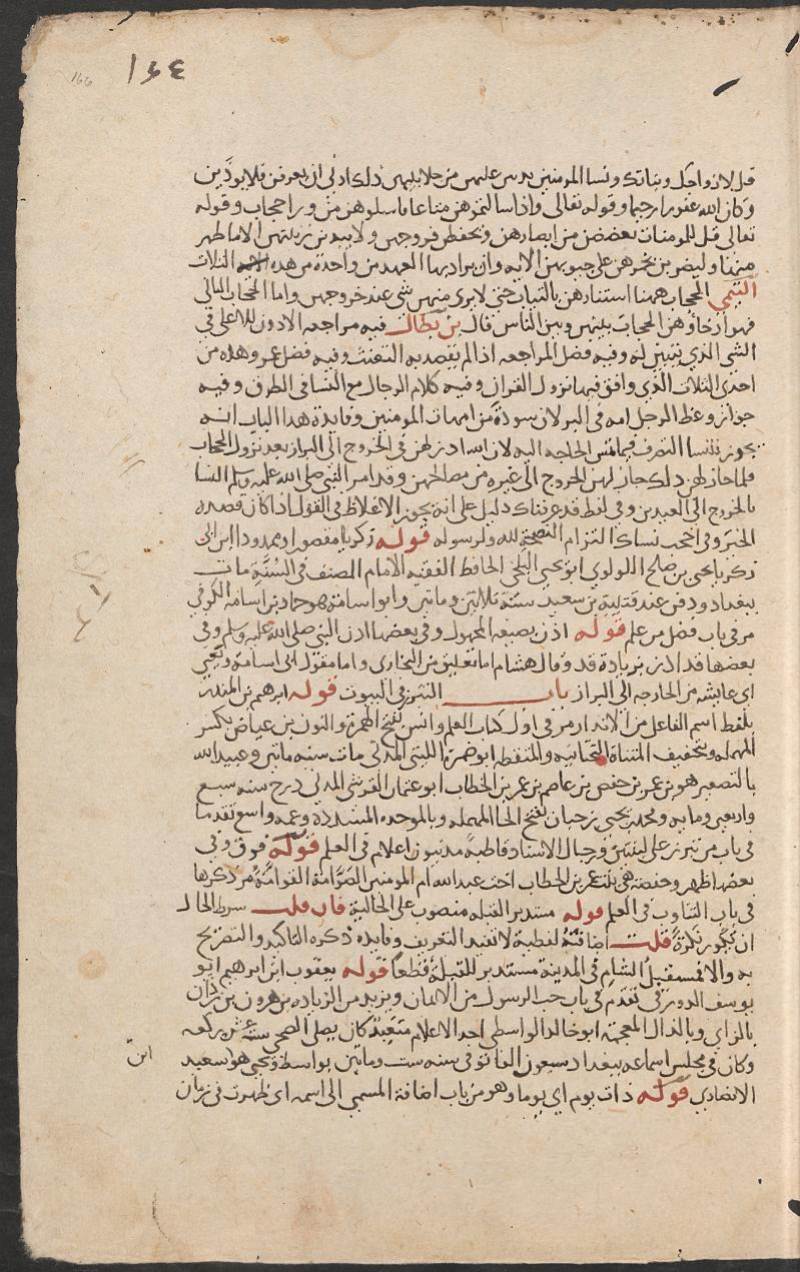 ١٦٤
166
قل لازواجك وبناتك ونسا المومنين يدنين عليهن من جلابيبهن ذلك ادنى ان يعرفن فلا يوذين
وكان الله غفورا رحيما وقوله تعالى واذا سالتموهن متاعا فاسلوهن من ورا حجاب وقوله
تعالى قل للمومنات يغضضن من ابصارهن ويحفظن فروجهن ولا يبدين زينتهن الا ما ظهر
منها وليضربن بخمرهن على جيوبهن الايه وان يراد بها العهد من واحدة من هذه الثلاث
التيمي الحجاب ههنا استتارهن بالثياب حتى لا يرى منهن شي عند خروجهن واما الحجاب الثاني
فهو ارخاوهن الحجاب بينهن وبين الناس قال بن بطال فيه مراجعه الادون للاعلى في
الشي الذي يتبين له وفيه فضل المراجعه اذا لم يقصد به التعنت وفيه فضل عمر وهذه من
احدى الثلاث الذي وافق فيها نزول القران وفيه كلام الرجال مع النسا في الطرق وفيه
جواز وعظ الرجل امه في البر لان سودة من امهات المومنين وفايدة هذا الباب انه
يجوز للنسا التصرف فيما تمس الحاجه اليه لان الله اذن لهن في الخروج الى البراز بعد نزول الحجاب
فلما جاز لهن ذلك جاز لهن الخروج الى غيره من مصالحهن وقد امر النبي صلى الله عليه وسلم النسا
بالخروج الى العيدين وفي لفظ قد عرفناك دليل على انه يجوز الاغلاظ في القول اذا كان قصده
الخير وفي احجب نساك التزام النصيحة لله ولرسوله قوله زكريا مقصورا وممدودا ابن ابى
زكريا يحيى بن صالح اللولوي ابو يحيى البلخي الحافظ الفقيه الامام المصنف في السنة مات
ببغداد ودفن عند قتيبة بن سعيد سنة ثلاثين وماتين وابو اسامة هو حماد بن اسامة الكوفي
مر في باب فضل من علم قوله اذن بصيغه المجهول وفي بعضها اذن النبي صلى الله عليه وسلم وفي
بعضها قد اذن بزيادة قد وقال هشام اما تعليق من البخاري واما مقول ابى اسامة ويعني
اي عايشه من الخارجه الى البراز باب التبرز في البيوت قوله ابرهيم بن المنذر
بلفظ اسم الفاعل من الانذار مر في اول كتاب العلم وانس بفتح الهمزة والنون بن عياض بكسر
المهمله وبتخفيف المثناة التحتانيه والمنقطه ابو ضمرة الليثي المدني مات سنه ماتين وعبيد الله
بالتصغير هو بن عمر بن حفص بن عاصم بن عمر بن الخطاب ابو عثمان القرشي المدني درج سنه سبع
واربعين ومايه ومحمد بن يحيى بن حبان بفتح الحا المهمله وبالموحده المشدده وعمه واسع تقدما
في باب من تبرز على لبنتين ورجال الاسناد قاطبة مدنيون اعلام في العلم قوله فوق وفي
بعضها ظهر وحفصة هي بنت عمر بن الخطاب اخت عبد الله ام المومنين الصوامة القوامة مر ذكرها
في باب التناوب في العلم قوله مستدبر القبله منصوب على الحالية فان قلت شرط الحال
ان تكون نكرة قلت اضافته لفظية لا تفيد التعريف وفايده ذكره التاكيد والتصريح
به والا فمستقبل الشام في المدينة مستدبر للقبلة قطعا قوله يعقوب ابن ابرهيم ابو
يوسف الدورقي تقدم في باب حب الرسول من الايمان ويزيد من الزياده بن هرون بن زاذان
بالزاي وبالذال المعجمة ابو خالد الواسطي احد الاعلام متعبد كان يصلى الضحى ستة عشر ركعه
وكان في مجلس اسماعه ببغداد سبعون الفا توفي سنه ست وماتين بواسط ويحيى هو سعيد
ابن
الانصاري قوله ذات يوم اي يوما وهو من باب اضافة المسمى الى اسمه اي ظهرت في زمان